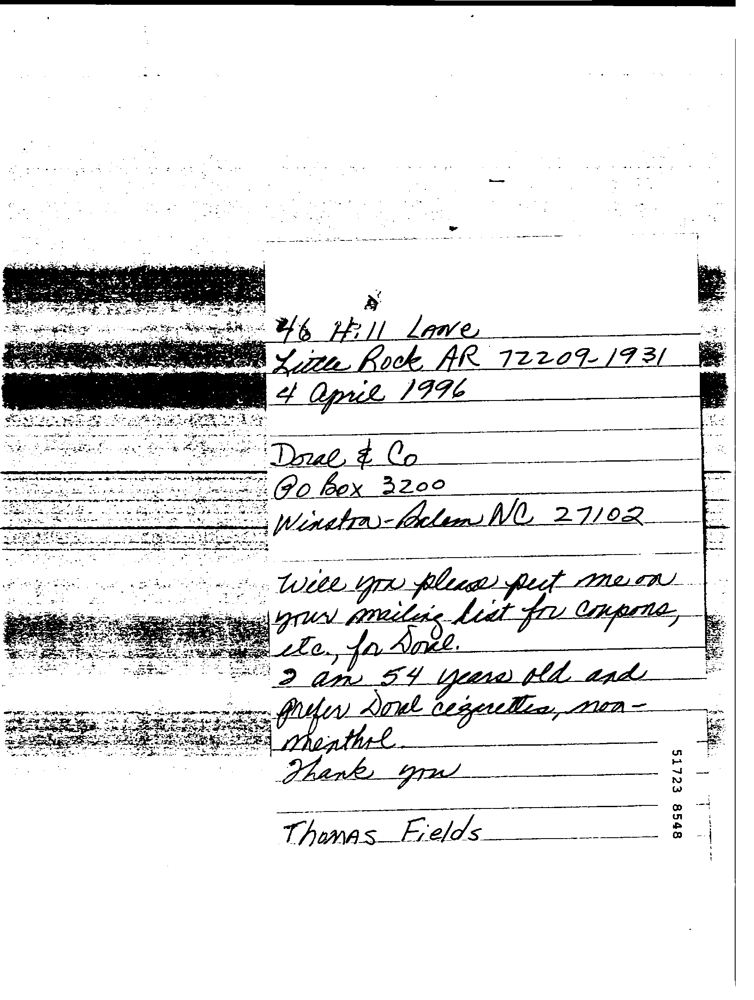 46 Hill Lane
Little Rock AR 72209-1931
4 April 1996
Doral & Co
PO Box 3200
Winston-Salem NC 27102
Will you please put me on
your mailing list for coupons,
etc., for Doral.
I am 54 years old and
prefer Doral cigarettes, non-
menthol.
Thank you
Thomas Fields
51723 8548